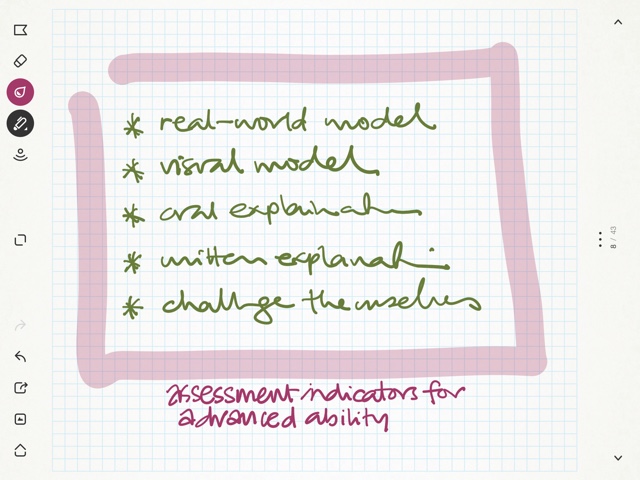 * real-world model
* visual model
* oral explanation
* written explanation
* challenge themselves
assessment indicators for
advanced ability
8 / 43